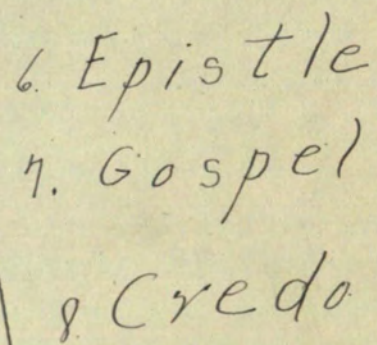 6. Epistle
7. Gospel
8 Credo